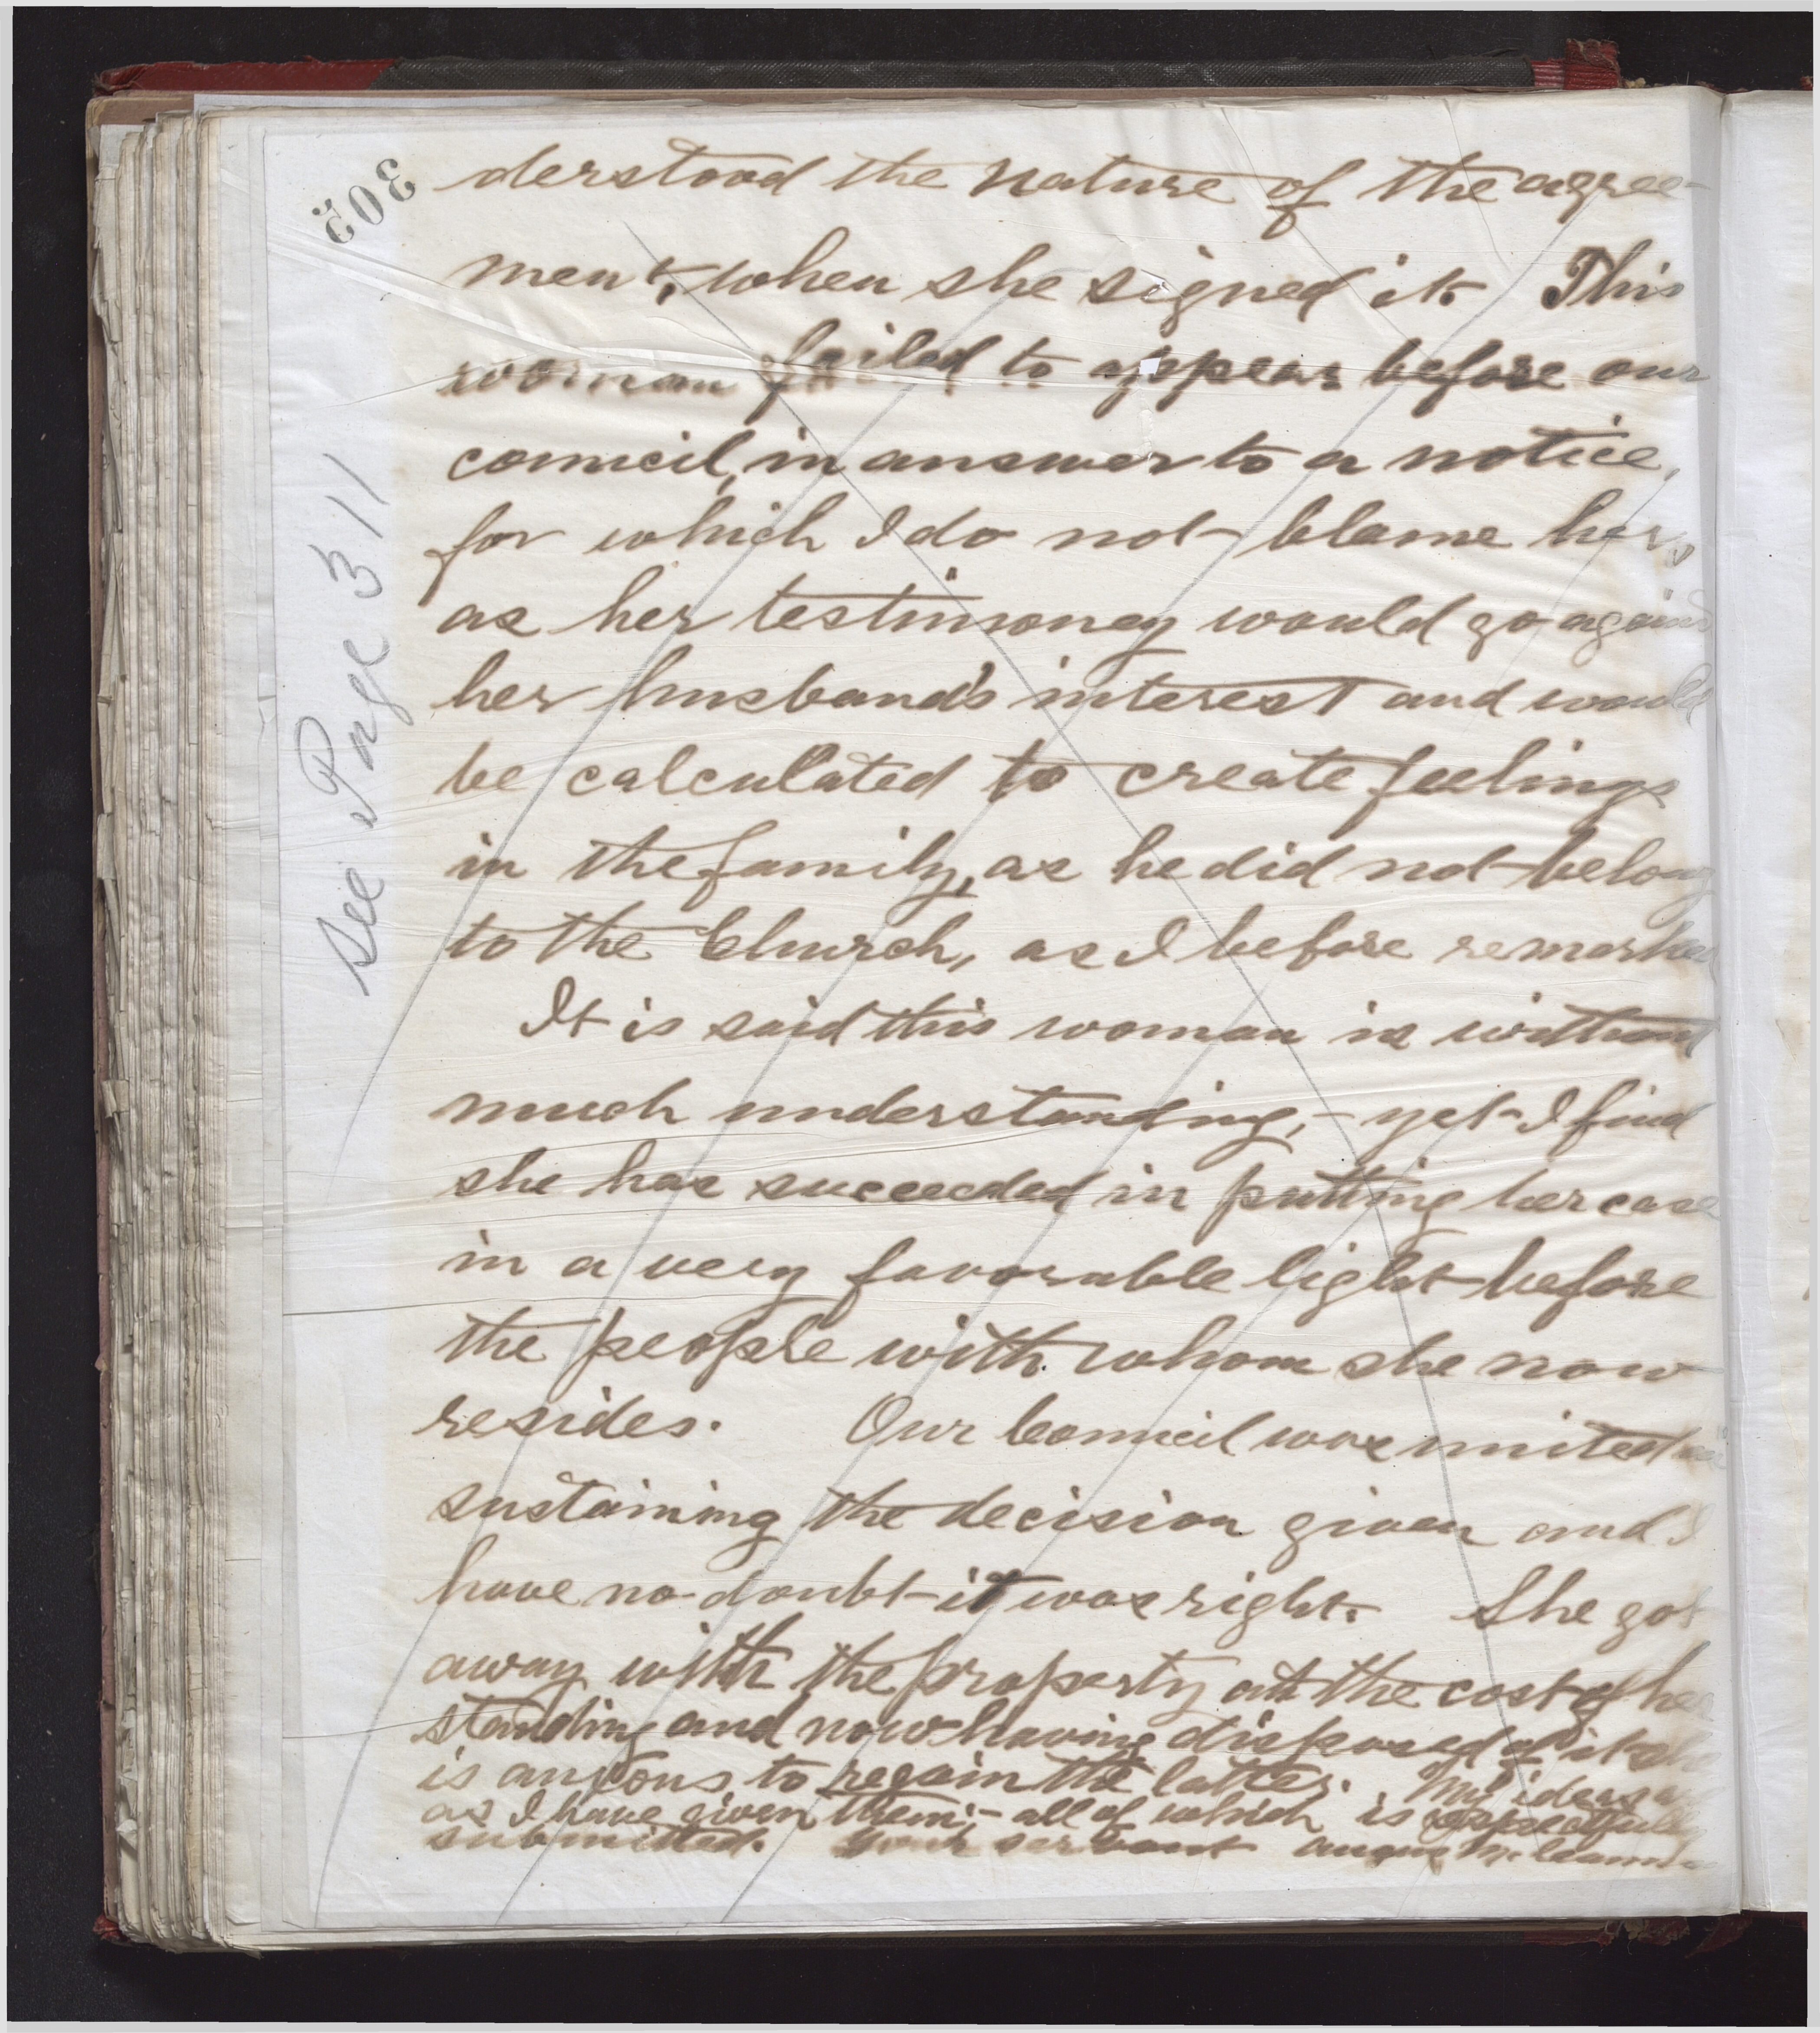 305
See Page 311
derstood the nature of the agree-
ment, when she signed it. This
woman failed to appear before our
council, in answer to a notice,
for which I do not blame her,
as her testimoney would go agains
her husband's interest and would
be calculated to create feelings
in the family, as he did not belong
to the Church, as I before remarked
It is said this woman is without
much understanding, - yet I find
she has succeeded in putting her case
in a very favorable light before
the people with whom she now
resides. Our Council was united in
sustaining the decision given and I
have no doubt it was right. She got
away with the property at the cost of her
standing and now having disposed of it she
is anxious to regain the latter. My ideas are
as I have given them; - all of which is respectfully
submitted. Your servant Angus M. Cannon